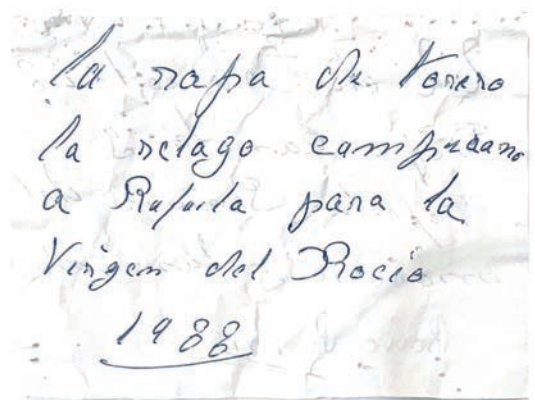 la ropa de torero
la relago campuzano
a Rafaela para la
Virgen del Rocio
1988